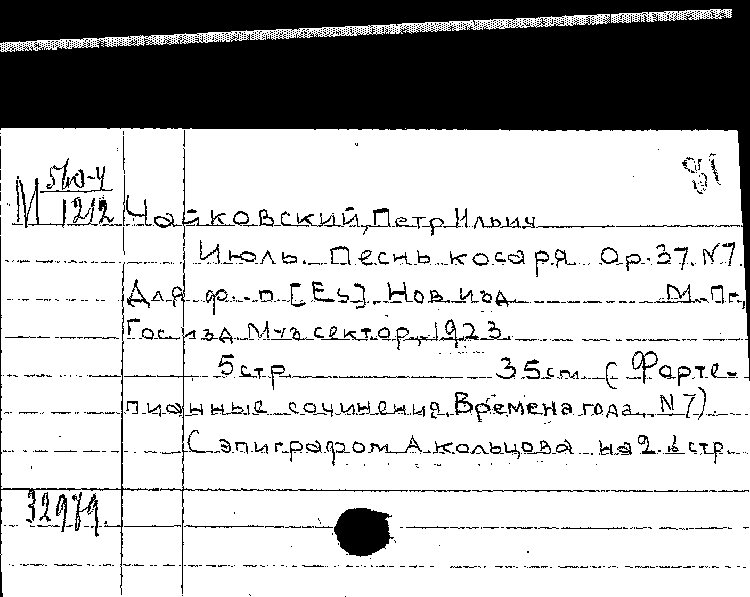 81
М 560-4
1212
Чайковский, Петр Ильич
Июль. Песнь косаря Op. 37. N 7.
Для ф.-п [Es]. Нов изд М.-Пг,
Гос изд Муз сектор, 1923.
5 стр 35 см. (Форте-
пианные сочинения, Времена года, N 7)
С эпиграфом А. Кольцова на 2. стр.
32979.